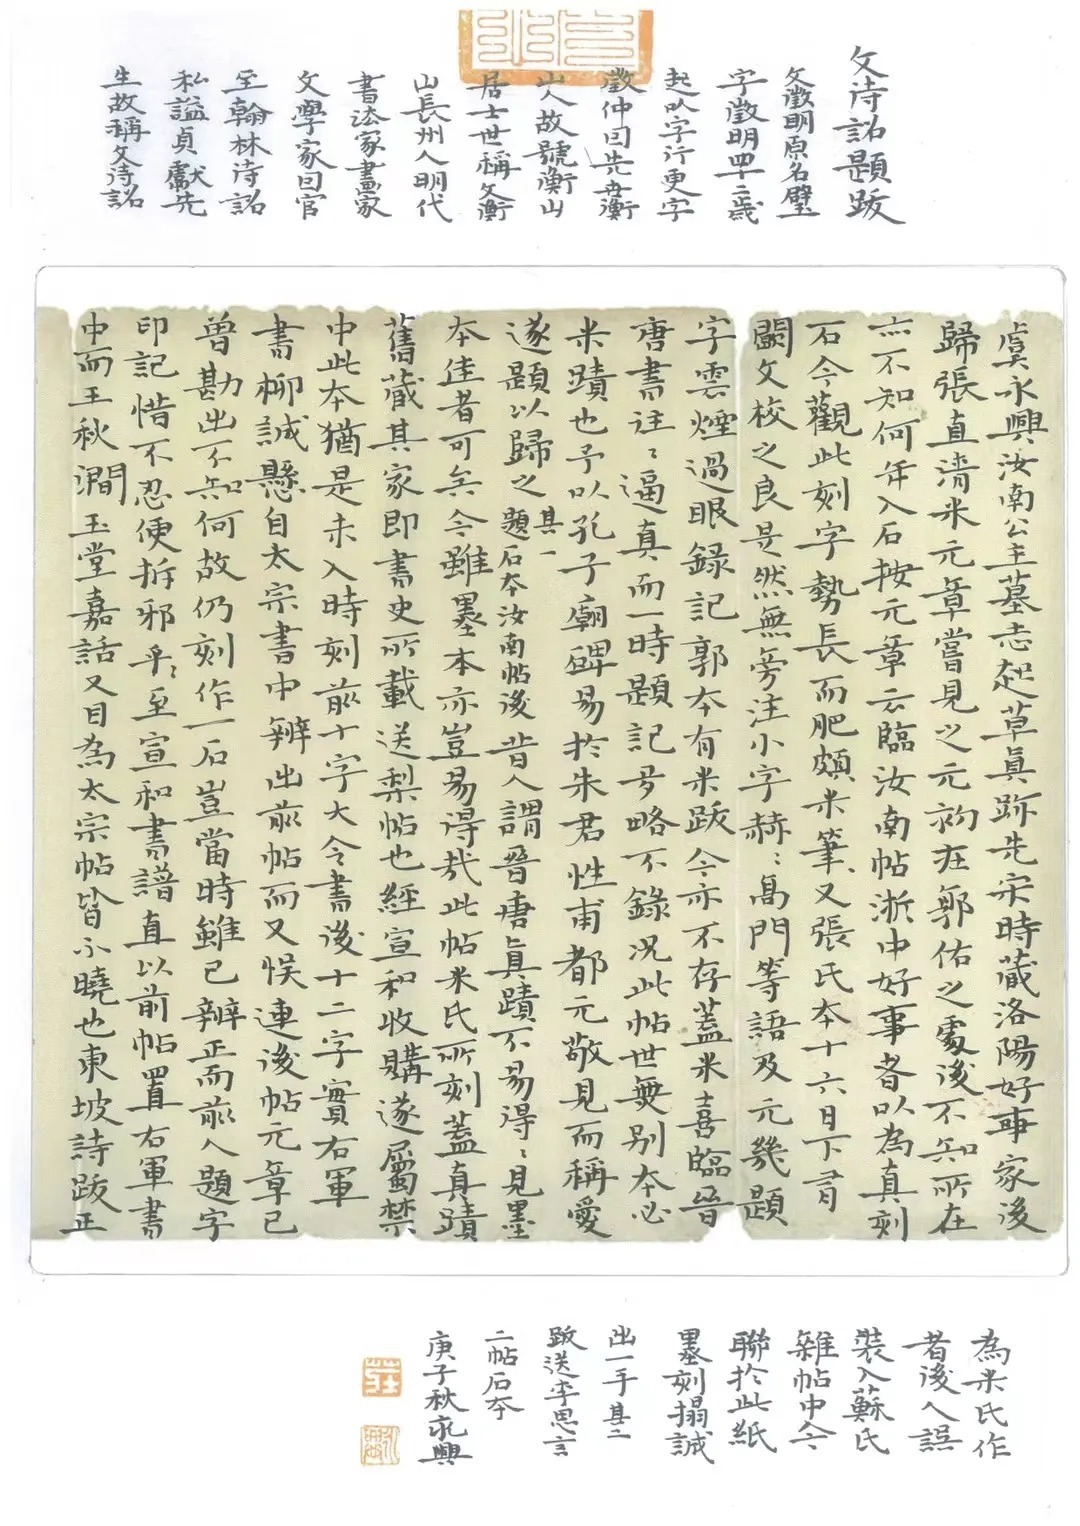 文待詔題跋
文徵明原名璧
字徵明四二歲
起以字行更字
徵仲曰先世衡
山人故號衡山
居士世稱文衡
山長州人明代
書法家畫家
文學家曰官
至翰林待詔
私謚貞獻先
生故稱文待詔
虞永興汝南公主墓志起草真跡先宋時藏洛陽好事家後
歸張直清米元章嘗見之元祐在郭佑之處後不知所在
亦不知何年入石按元章云臨汝南帖浙中好事者以為真刻
石今觀此刻字勢長而肥頗米筆又張氏本十六日下有
闕文校之良是然無旁注小字赫〻高門等語及元幾題
字雲煙過眼錄記郭本有米跋今亦不存蓋米喜臨晉
唐書往〻逼真而一時題記多略不錄況此帖世無別本必
米蹟也予以孔子廟碑易於朱君性甫都元敬見而稱愛
遂題以歸之其一題石本汝南帖後昔人謂晉唐真蹟不易得〻見墨
本佳者可矣今雖墨本亦豈易得哉此帖米氏所刻蓋真蹟
舊藏其家即書史所載送梨帖也經宣和收購遂屬禁
中此本猶是未入時刻前十字大令書後十二字實右軍
書柳誠懸自太宗書中辨出前帖而又悞連後帖元章已
曾勘出不知何故仍刻作一石豈當時雖已辨正而前人題字
印記惜不忍便拆邪乎〻至宣和書譜直以前帖置右軍書
中而王秋澗玉堂嘉話又目為太宗帖皆不曉也東坡詩跋正
為米氏作
者後人誤
裝入蘇氏
雜帖中今
聯於此紙
墨刻搨誠
出一手其二
跋送李思言
二帖石本
庚子秋永興
莊